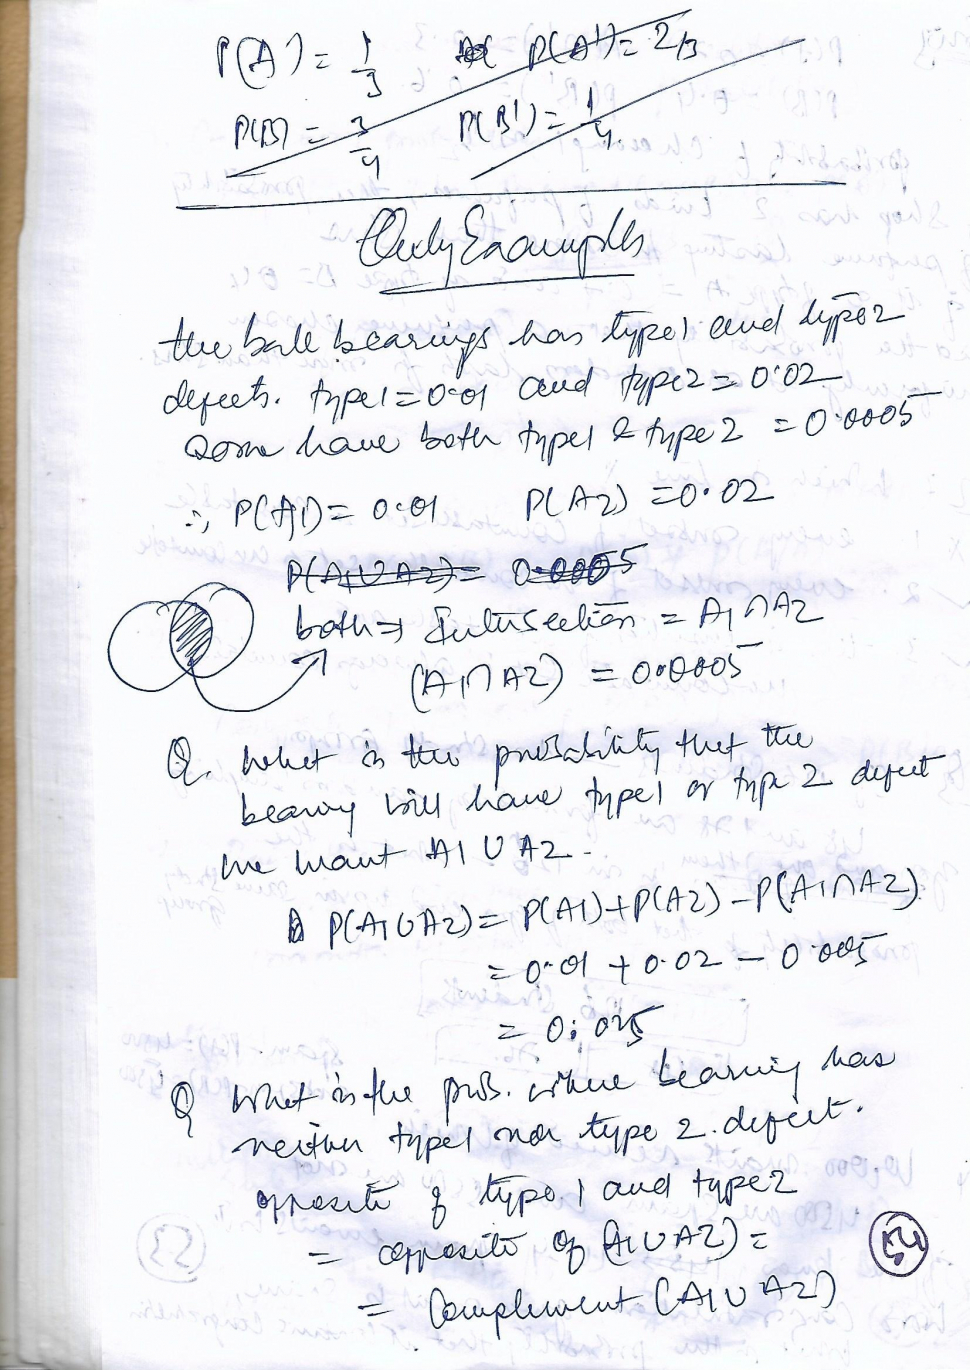 P(A) = 1/3 P(A') = 2/3
P(B) = 3/4 P(B') = 1/4
Only Examples
the ball bearings has type1 and type2
defects. type1=0.01 and type2=0.02
Some have both type1 & type2 = 0.0005
∴, P(A1) = 0.01 P(A2) = 0.02
P(A1UA2) = 0.0005
both → Intersection = A1∩A2
(A1∩A2) = 0.0005
Q. What is the probability that the
bearing will have type1 or type 2 defect
we want A1 U A2.
P(A1UA2) = P(A1)+P(A2)-P(A1∩A2)
= 0.01 + 0.02 - 0.005
= 0.025
Q What is the prob. where bearing has
neither type1 nor type 2 defect.
opposite of type 1 and type2
= opposite of (A1UA2) =
= Complement (A1 U A2)
54